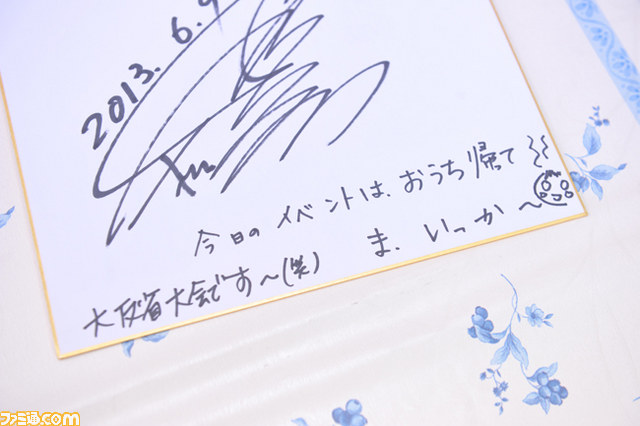 2013.6.9
今日のイベントは、おうち帰て
大反省大会です〜(笑)
ま、いっか〜
ファミ通.com